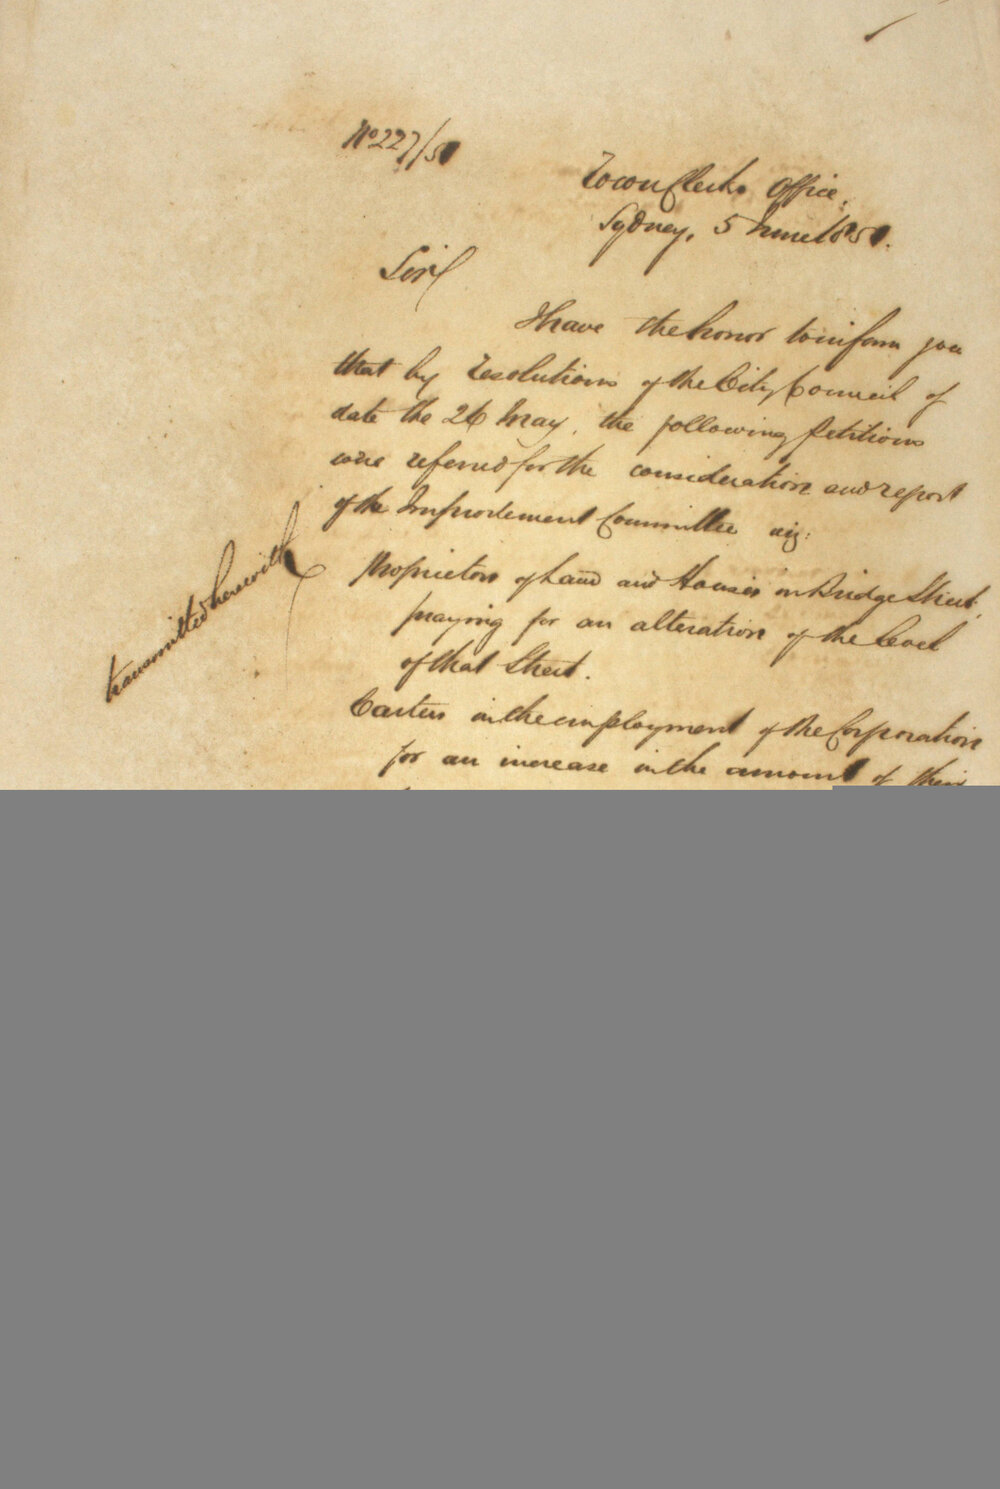 No 227/51
Town Clerks Office,
Sydney, 5 June 1851.
Sir
I have the honor to inform you
that by resolutions of the City Council of
date the 26 May, the following petitions
were referred for the consideration and report
of the Improvement Committee viz:
transmitted herewith
Proprietors of Land and Houses in Bridge Street,
praying for an alteration of the level
of that Street.
Carters in the employment of the Corporation
for an increase in the amount of their